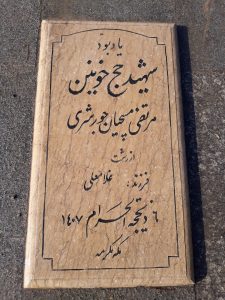 یادبود
شهید حج خونین
مرتضی مسیحیان جوبرشری
از رشت
فرزند، غلامعلی
۶ ذیحجة الحرام ۱۴۰۷
مکه مکرمه